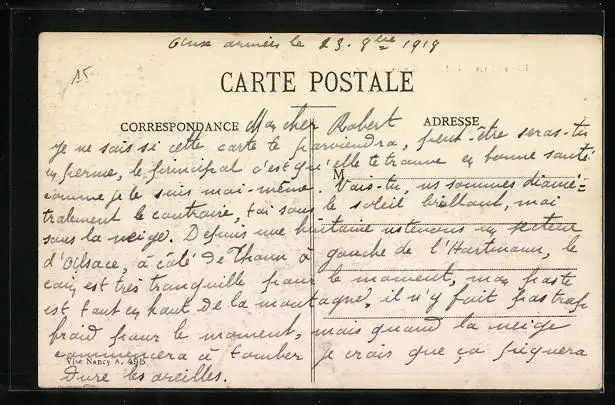 Aux armées le 23. 9bre 1919
15
CARTE POSTALE
CORRESPONDANCE Mon cher Robert ADRESSE
je ne sais si cette carte te parviendra, peut-être seras-tu
en perme, le principal c'est qu'elle te trouve en bonne santé
M
comme je le suis moi-même. Vois-tu, ns sommes diamé=
tralement le contraire, toi sous le soleil brillant, moi
sous la neige. Depuis une huitaine ns tenons un secteur
d'Alsace, à côté de Thann à gauche de l'Hartmann, le
coin est très tranquille pour le moment, mon poste
est tout en haut de la montagne, il n'y fait pas trop
froid pour le moment, mais quand la neige
commencera à tomber je crois que ça piquera
Vise Nancy A. 495
dure les oreilles.